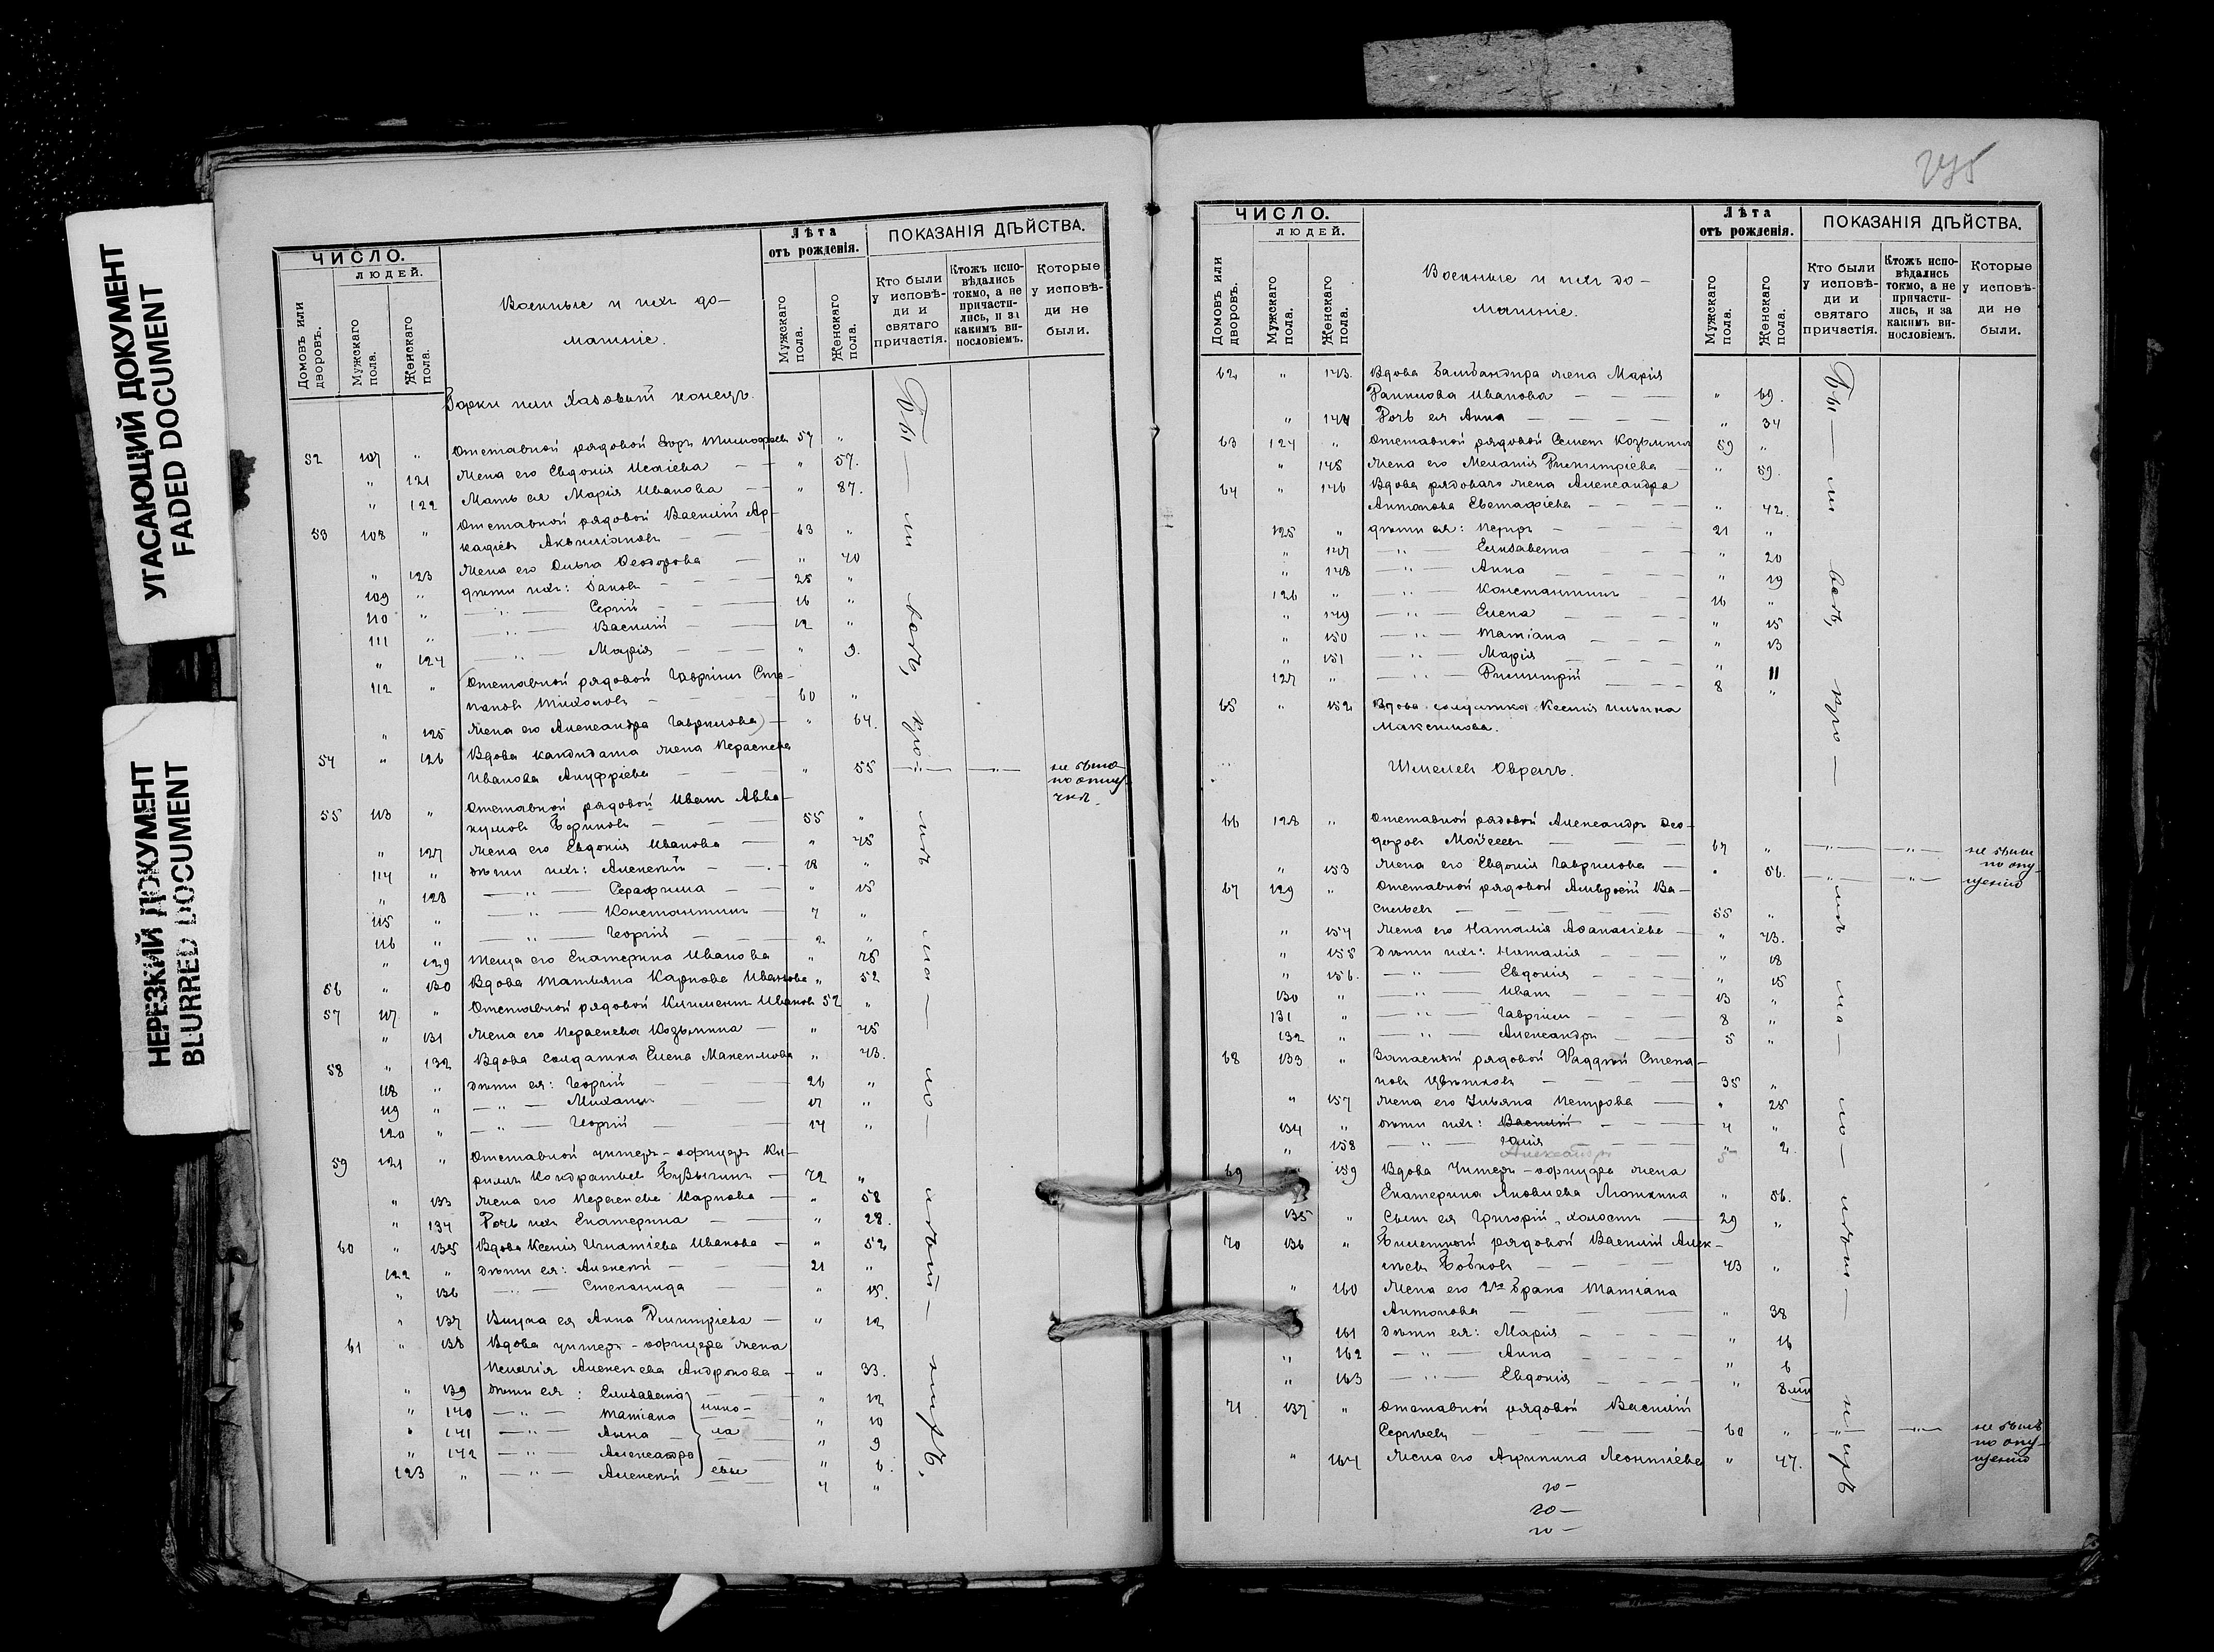 УГАСАЮЩИЙ ДОКУМЕНТ
FADED DOCUMENT
НЕРЕЗКИЙ ДОКУМЕНТ
BLURRED DOCUMENT
ЧИСЛО.
ЛЮДЕЙ.
Домовъ или дворовъ.
Мужскаго пола.
Женскаго пола.
Военные и ихъ до-
машніе.
Лѣта
отъ рожденія.
Мужскаго пола.
Женскаго пола.
ПОКАЗАНІЯ ДѢЙСТВА.
Кто были у исповѣ-ди и святаго причастія.
Ктожъ испо-вѣдались токмо, а не причасти-лись, и за какимъ ви-нословіемъ.
Которые у исповѣ-ди не были.
конецъ.
52 107 " Отставной рядовой Тимофеевъ 57 "
" 121 Жена его Евдокія Исаіева — " 57.
" 122 Мать ея Марія Иванова — " 87.
53 108 " Отставной рядовой Василій Ар-
кадіевъ — 63 "
" 123 Жена его Ольга Ѳеодорова — " 40
109 " Дѣти ихъ: Іаковъ — 25 "
110 " — " — Сергій — 16 "
111 " — " — Василій — 12 "
" 124 — " — Марія — " 9.
112 " (Отставной рядовой Гавріилъ Сте-
пановъ Тихоновъ — 60 "
" 125 Жена его Александра Гаврилова) — " 64.
54 " 126 Вдова кандидата жена Параскева
Иванова Ануфріева — " 55 — " — — " — не была
по отлу-
чкѣ.
55 113 " Отставной рядовой Иванъ Авва-
кумовъ — 55 "
" 127 Жена его Евдокія Иванова — " 45
114 " Дѣти ихъ: Алексѣй — 18 "
" 128 — " — Серафима — " 15
115 " — " — Константинъ — 7 "
116 " — " — Георгій — 2 "
" 129 Теща его Екатерина Иванова " 75
56 " 130 Вдова Татьяна Карпова Иванова " 52
57 117 " Отставной рядовой Климентъ Ивановъ 52 "
" 131 Жена его Параскева Козьмина — " 45
58 " 132 Вдова солдатка Елена Максимова " 43.
118 " Дѣти ея: Георгій — 26 "
119 " — " — Михаилъ — 17 "
120 " — " — Георгій — 14 "
59 121 " Отставной унтеръ-офицеръ Ки-
риллъ Кондратьевъ — 72 "
" 133 Жена его Параскева Карпова — " 58
" 134 Дочь ихъ Екатерина — " 28.
60 " 135 Вдова Ксенія Игнатіева Иванова — " 52
122 " Дѣти ея: Алексѣй — 21 "
" 136 — " — Степанида — " 15.
" 137 Внука ея Анна Димитріева — " 12
61 " 138 Вдова унтеръ-офицера жена
Пелагія Алексѣева Андронова — " 33.
" 139 Дѣти ея: Елисавета } Нико- " 12
" 140 — " — Татіана " 10
" 141 — " — Анна } ла " 9
" 142 — " — Александра " 6.
123 " — " — Алексѣй } евы 4 "
ЧИСЛО.
ЛЮДЕЙ.
Домовъ или дворовъ.
Мужскаго пола.
Женскаго пола.
Военные и ихъ до-
машніе.
Лѣта
отъ рожденія.
Мужскаго пола.
Женскаго пола.
ПОКАЗАНІЯ ДѢЙСТВА.
Кто были у исповѣ-ди и святаго причастія.
Ктожъ испо-вѣдались токмо, а не причасти-лись, и за какимъ ви-нословіемъ.
Которые у исповѣ-ди не были.
62 " 143. Вдова жена Марія
Иванова — " 69.
" 144 Дочь ея Анна — " 34
63 124 " Отставной рядовой Семенъ Козьминъ 59 "
" 145 Жена его Меланія Димитріева — " 59.
64 " 146 Вдова рядоваго жена Александра
Антонова Евстафіева — " 42.
125 " Дѣти ея: Петръ — 21 "
" 147 — " — Елисавета — " 20
" 148 — " — Анна — " 19
126 " — " — Константинъ — 16 "
" 149 — " — Елена — " 15
" 150 — " — Татіана — " 13
" 151 — " — Марія — " 11
127 " — " — Димитрій — 8 "
65 " 152 Вдова солдатка Ксенія Ильина
Максимова.
Шмелевъ Оврагъ.
66 128 " Отставной рядовой Александръ Ѳео-
доровъ Моѵсеевъ — 67 " — " — — " — не были
" 153 Жена его Евдокія Гаврилова — " 56. — " — — " — по опу-
щенію
67 129 " Отставной рядовой Амвросій Ва-
сильевъ — 55 "
" 154 Жена его Наталія Аѳанасіева — " 43.
" 155 Дѣти ихъ: Наталія — " 18
" 156. — " — Евдокія — " 15
130 " — " — Иванъ — 13 "
131 " — " — Гавріилъ — 8 "
132 " — " — Александръ — 5 "
68 133 " Запасный рядовой Ѳаддей Степа-
новъ Цвѣтковъ — 35 "
" 157 Жена его Ульяна Петрова — " 25
134 " Дѣти ихъ: Василій — 4 "
" 158 — " — Юлія — " 2.
Александръ 5
69 " 159 Вдова Унтеръ-офицера жена
Екатерина Яковлева " 56.
135 " Сынъ ея Григорій, холостъ — 29 "
70 136 " Билетный рядовой Василій Алек-
сѣевъ Бобковъ — 43 "
" 160 Жена его 2го брака Татіана
Антонова — " 38
" 161 Дѣти ея: Марія — " 16
" 162 — " — Анна — " 6
" 163 — " — Евдокія — " 8 м.
71 137 " Отставной рядовой Василій
Сергѣевъ — 60 " — " — — " — не былъ
по опу-
щенію
" 164 Жена его Агрипина Леонтіева " 47.